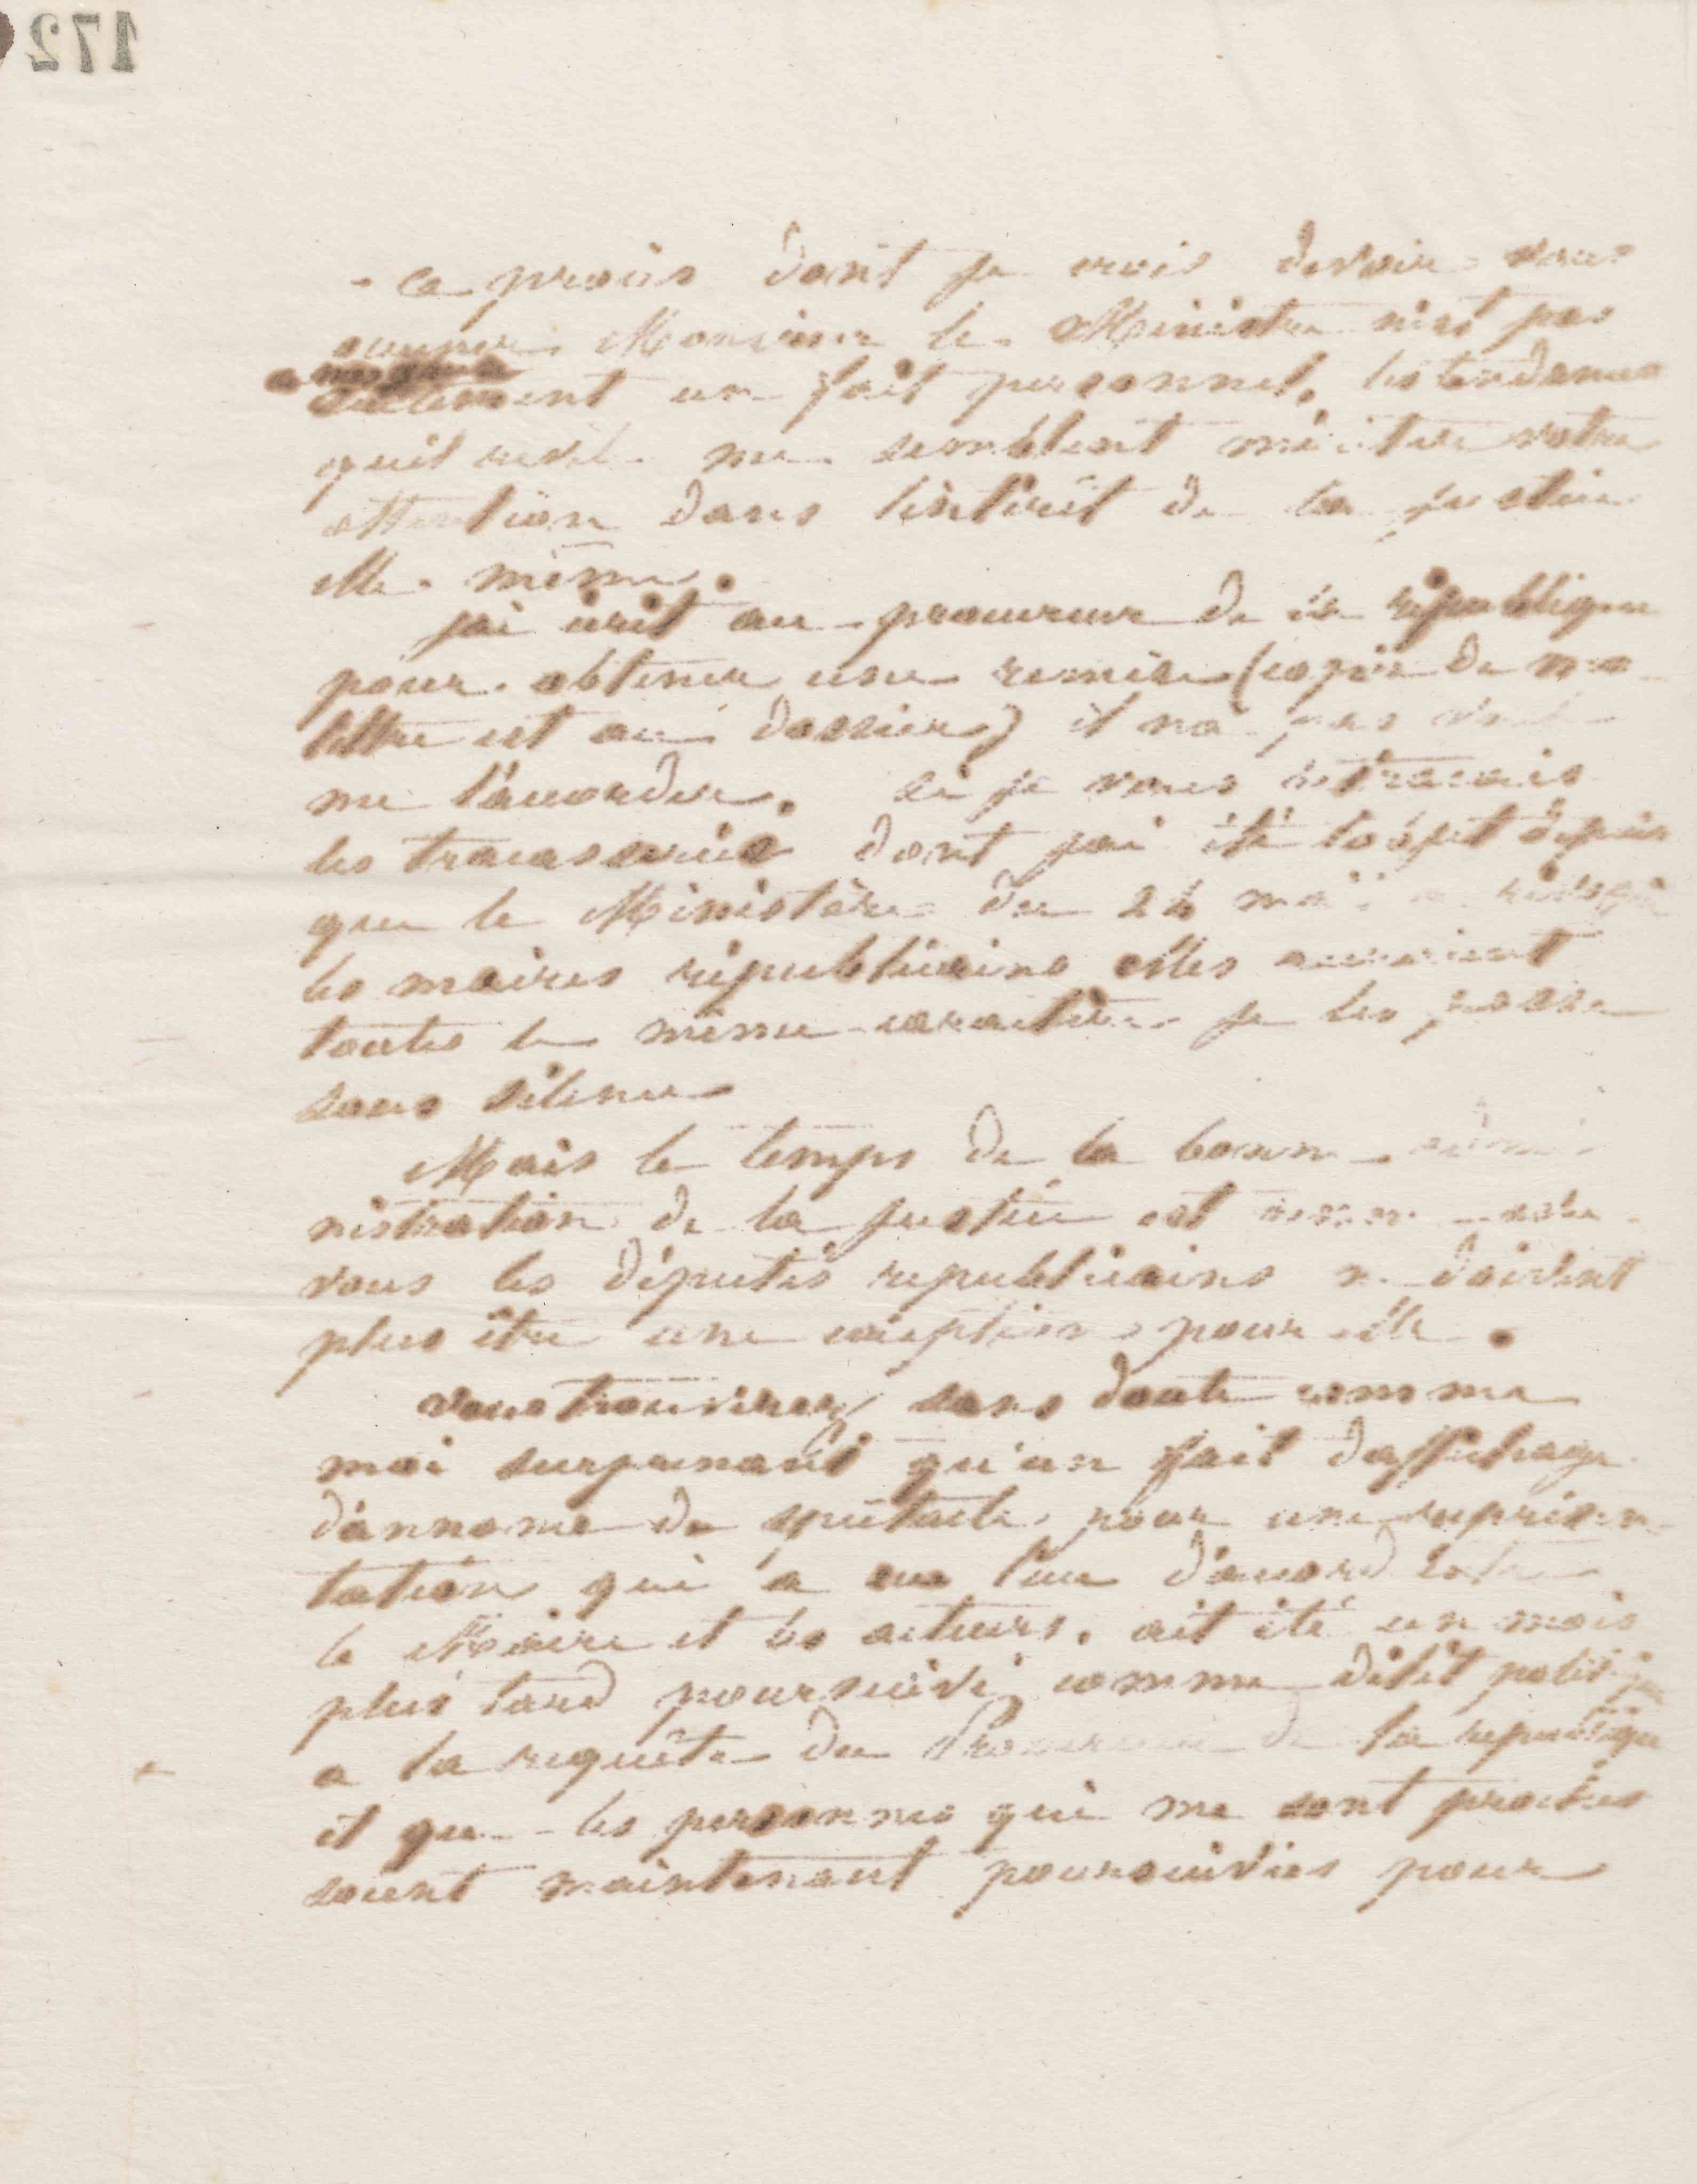 172
- Ce procès dont je crois devoir vous
occuper Monsieur le Ministre n'est pas
seulement un fait personnel. les tendances
qu'il révèle me semblent mériter votre
attention dans l'intérêt de la justice
elle même.
j'ai écrit au procureur de la république
pour obtenir une remise (copie de ma
lettre est au dossier) il n'a pas voulu
me l'accorder. si je vous retraçais
les tracasseries dont j'ai été l'objet depuis
que le Ministère du 24 mai a révoqué
les maires républicains elles auraient
toutes le même caractère je les passe
sous silence
Mais le temps de la bonne admi
nistration de la justice est
vous les députés republicains ne doivent
plus être une exception pour elle.
vous trouverez sans doute comme
moi surprenant qu'un fait d'affichage
d'annonce de spectacle pour une représen-
tation qui a eu lieu d'accord entre
le Maire et les acteurs. ait été un mois
plus tard poursuivi comme délit politique
a la requête du Procureur de la republique
et que les personnes qui me sont proches
soient maintenant poursuivies pour